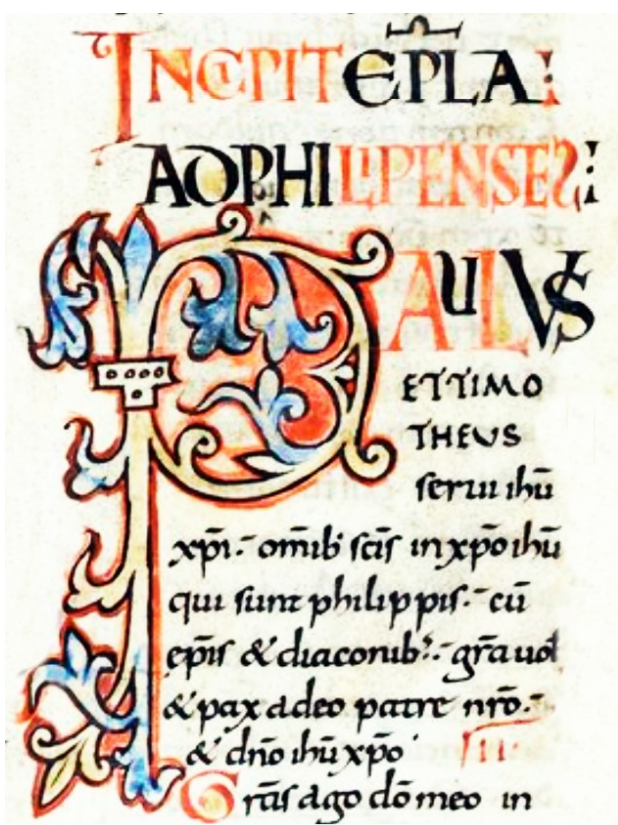 INCIPIT EP̅LA:
AD PHILIPENSES:
PAULUS
ET TIMO
THEUS
serui ihū
xp̄i. om̄ib; sc̄is in xp̄o ihū
qui sunt philippis. cū
ep̄is & diaconib; gr̄a uob
& pax a deo patre nr̄o.
& dn̄o ihū xp̄o II
Gr̄as ago dō meo in